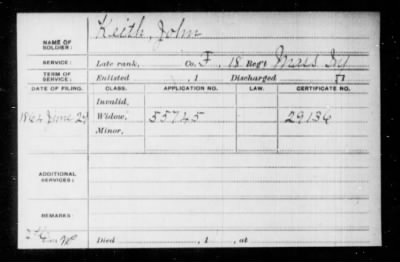 Keith, John
NAME OF SOLDIER:
SERVICE: Late rank, Co. F, 18 Reg't Mass Inf
TERM OF SERVICE: Enlisted , 1 Discharged , 1
DATE OF FILING. CLASS. APPLICATION NO. LAW. CERTIFICATE NO.
Invalid,
1864 June 24 Widow, 55745 29136
Minor,
ADDITIONAL SERVICES:
REMARKS:
Died , 1 , at